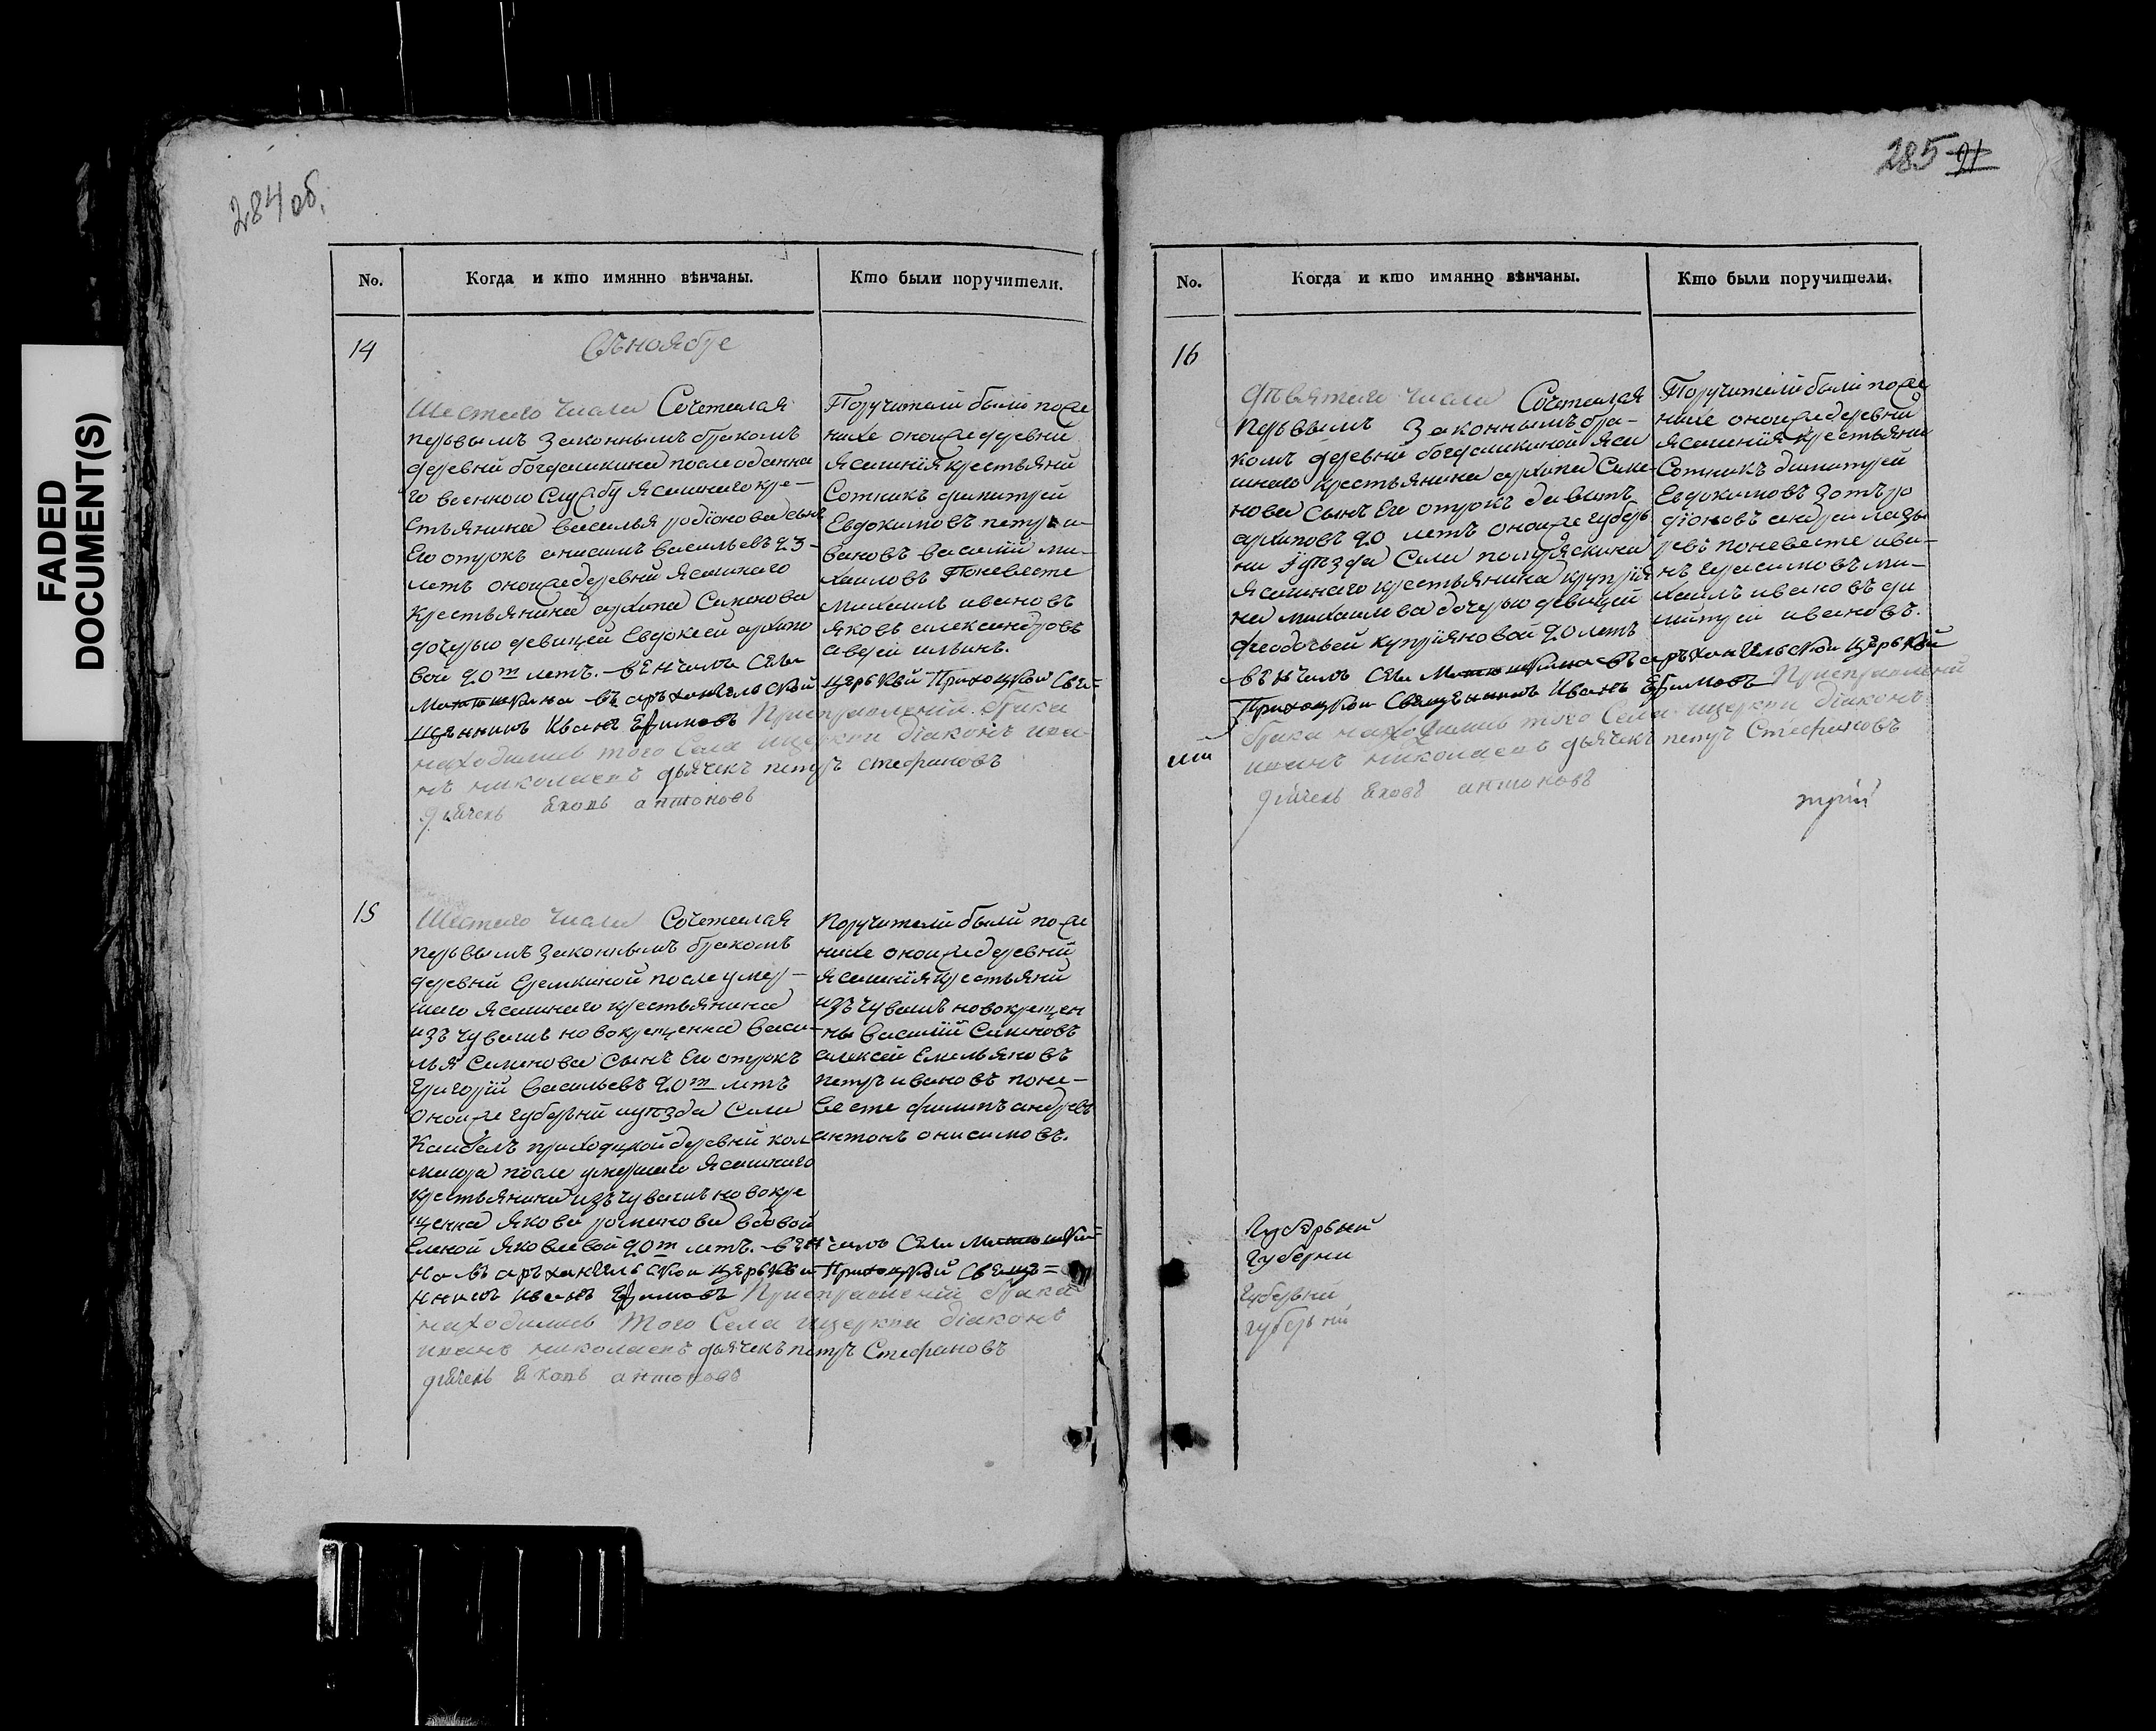 FADED
DOCUMENT(S)
284 об.
No.
Когда и кто имянно вѣнчаны.
Кто были поручители.
14
Въ ноябре
Шестаго числа Сочетался
первымъ Законнымъ бракомъ
деревни богдашкина после отданна
го военную Службу Ясашнаго кре-
стьянина василья родiонова сынъ
Его отрокъ анисимъ васильевъ 23
летъ оной же деревни Ясашнаго
крестьянина архипа Симонова
дочерью девицей Евдокеей архипо
вой 20т летъ. венчалъ Села
Матюшкина въ архангельской
церькви Приходской Свя-
щенникъ Иванъ Ефимовъ При справлении брака
находились того Села и церкви дiаконъ ива-
нъ николаевъ дьячекъ петръ стефановъ
дьячекъ Яковъ антоновъ
Поручители были по же
нихе оной же деревни
Ясашнiя крестьяни
Сотникъ димитрей
Евдокимовъ петръ и-
вановъ василiй ми-
хаиловъ По невесте
михаилъ ивановъ
яковъ александровъ
авдей ильинъ.
15
Шестаго числа Сочетался
первымъ Законнымъ бракомъ
деревни Еремкиной после умер-
шаго Ясашнаго крестьянина
изъ чувашъ новокрещенна васи-
лья Симонова Сынъ Его отрокъ
Григорiй васильевъ 20т летъ
Оной же губернiи и уѣзда Села
приходцкой деревни
после умершаго Ясашнаго
крестьянина изъ чувашъ новокре
щенна Якова романова вдовой
Еленой Яковлевой 20т летъ. венчалъ Села Матюшки-
на въ архангельской церькви Приходцкой Свяще-
нникъ Иванъ Ефимовъ При справлении брака
находились того Села и церкви дiаконъ
иванъ николаевъ дьячекъ петръ Стефановъ
дьячекъ Яковъ антоновъ
Поручители были по же
нихе оной же деревни
Ясашнiя крестьяни
изъ чувашъ новокрещен
ны василiй Симоновъ
алексей Емельяновъ
петръ ивановъ по не-
весте филипъ андревъ
антонъ онисимовъ.
285 91
No.
Когда и кто имянно вѣнчаны.
Кто были поручители.
16
Девятаго числа Сочетался
первымъ Законнымъ бра-
комъ деревни богдашкиной Яса
шнаго крестьянина архипа Симо-
нова сынъ Его отрокъ
архиповъ 20 летъ оной же губерь
ни Уѣзда Села
Ясашнаго крестьянина купрiя
на михаилова дочерью девицей
феодосьей купрiяновой 20 летъ
венчалъ Села Матюшкина въ архангельской церькви
Приходцкой Священникъ Иванъ Ефимовъ При справлении
брака находились того Села и церкви дiаконъ
иванъ николаевъ дьячекъ петръ Стефановъ
дьячекъ Яковъ антоновъ
Поручители были по же
нихе оной же деревни
Ясашнiя крестьяни
Сотникъ димитрей
Евдокимовъ ро
дiоновъ андрей лаза
ревъ по невесте ива-
нъ герасимовъ ми-
хаилъ ивановъ ди
митрей ивановъ.
Губерьни
Губерни
губерьнии
губерьнии